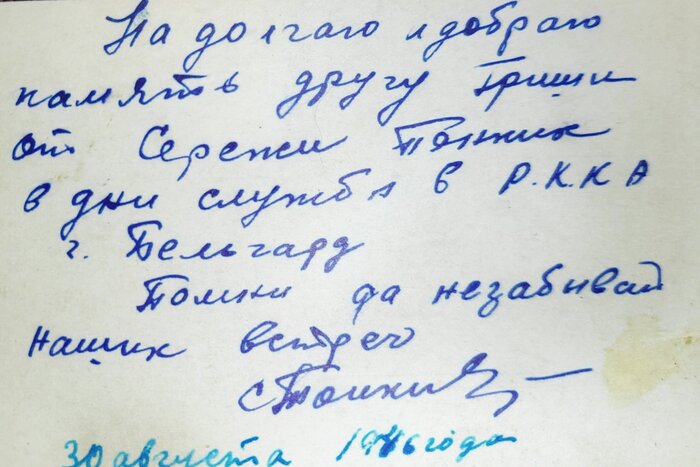 На долгаю и добраю
память другу Гриши
от Сережи
в дни служба в Р.К.К.А
г. Бельгард
Помни да незабывай
наших встреч
30 августа 1946 года